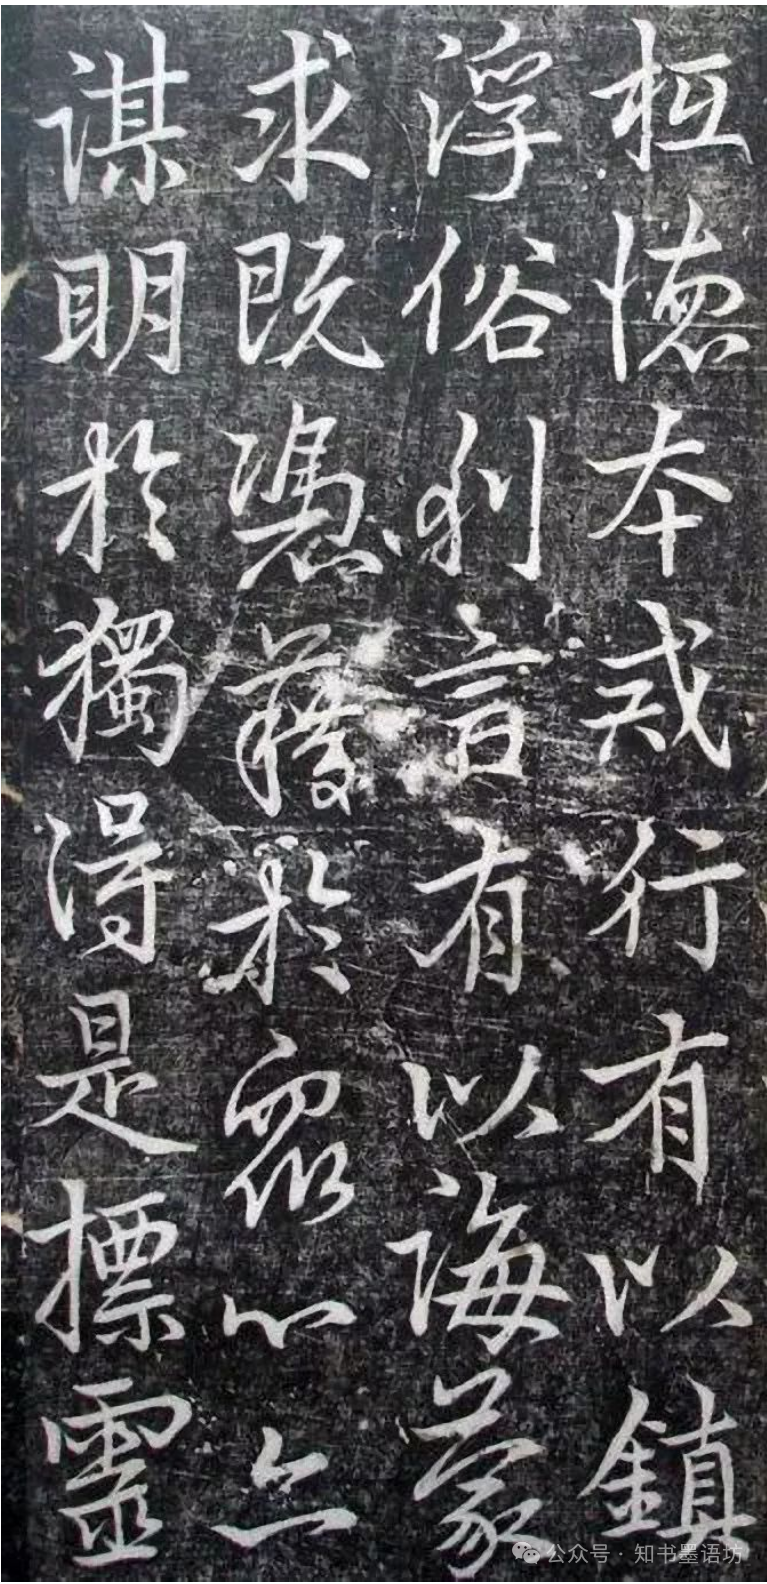 柢德本戒行有以鎮
浮俗利言有以誨蒙
求既憑藉於眾心亦
謀明於獨得是標靈
公众号 · 知书墨语坊